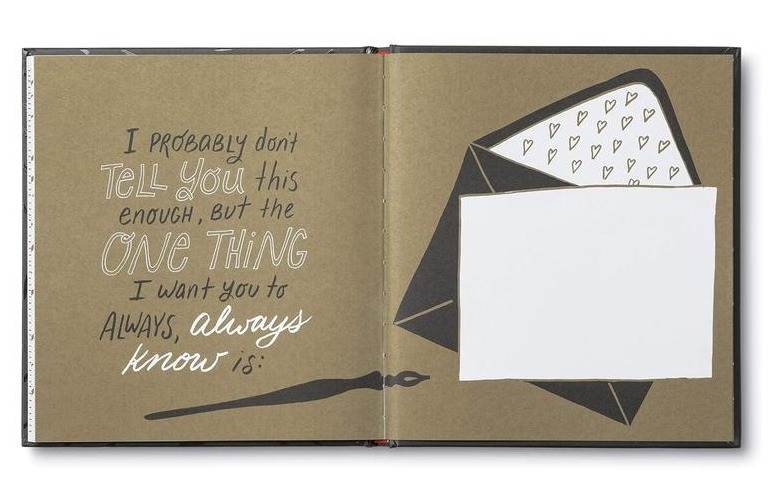 I PROBABLY don't
TELL YOU this
ENOUGH, BUT the
ONE THING
I want you to
ALWAYS, always
know is: